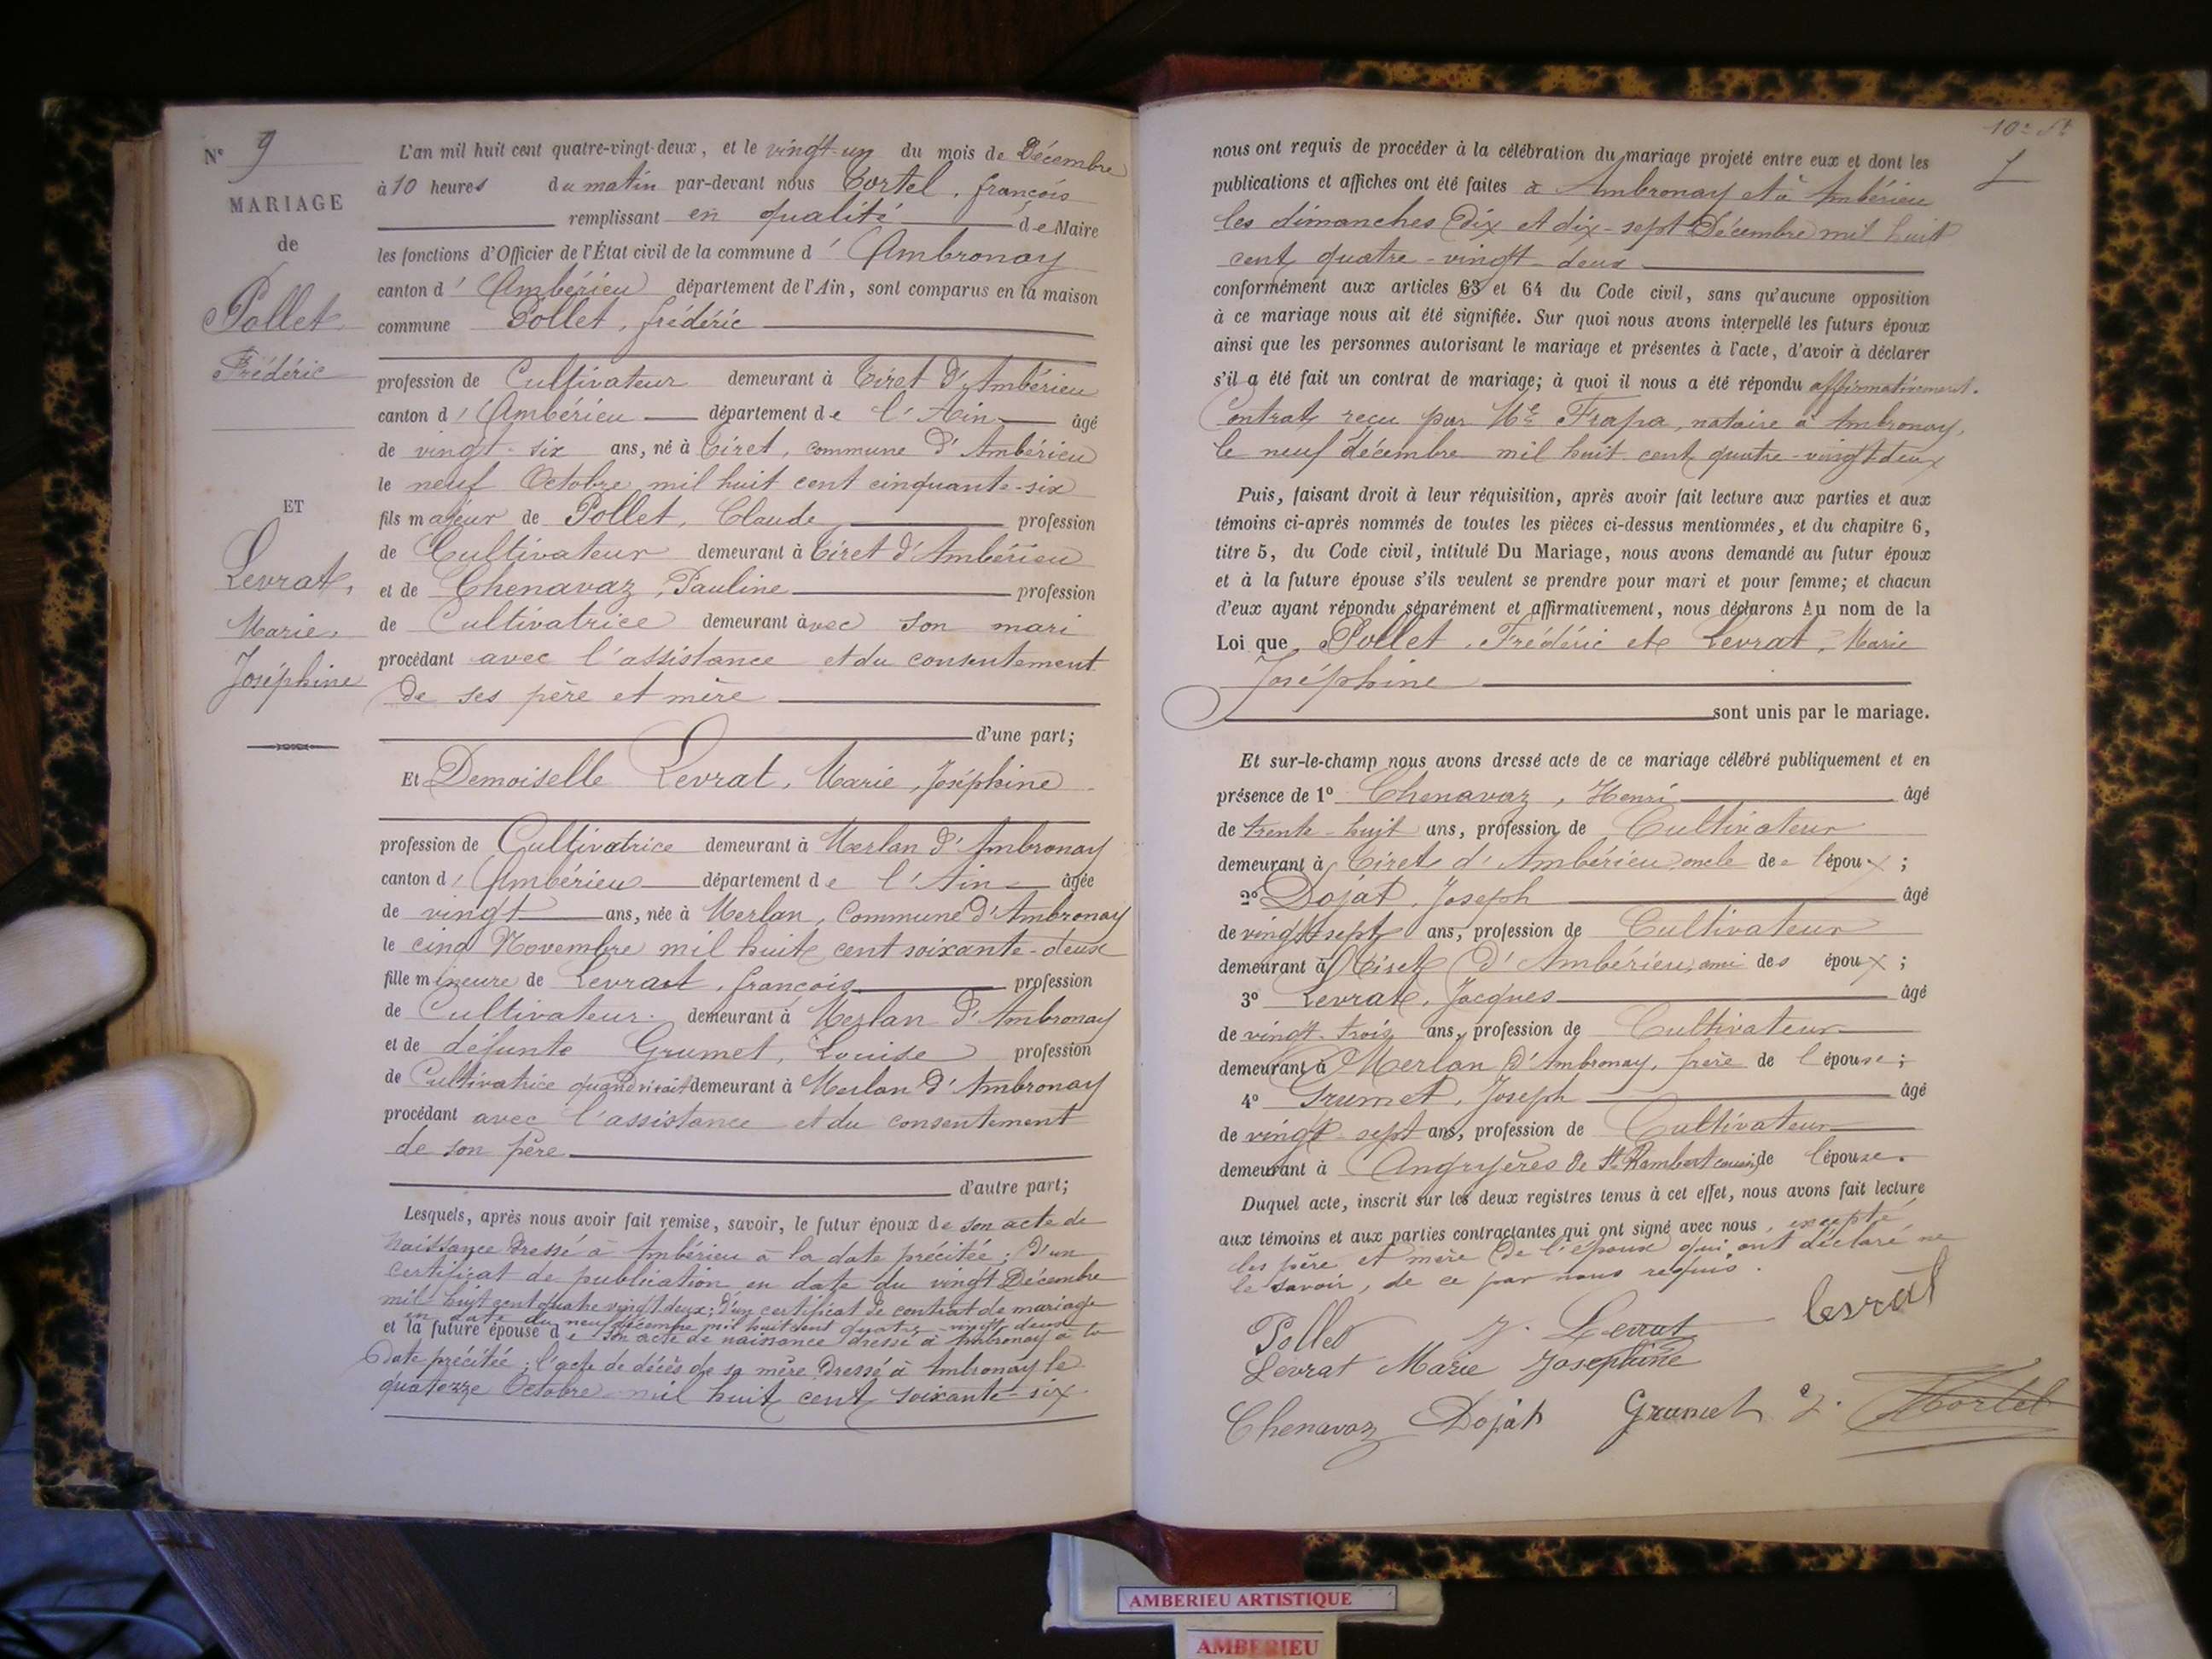 N° 9
MARIAGE
de
Pollet
Frédéric
ET
Levrat,
Marie,
Joséphine
L'an mil huit cent quatre-vingt-deux, et le vingt-un du mois de Décembre
à 10 heures du matin par-devant nous Tortel, françois
remplissant en qualité de Maire
les fonctions d'Officier de l'État civil de la commune d'Ambronay
canton d'Ambérieu département de l'Ain, sont comparus en la maison
commune Pollet, frédéric
profession de Cultivateur demeurant à Tiret d'Ambérieu
canton d'Ambérieu département de l'Ain âgé
de vingt-six ans, né à Tiret, commune d'Ambérieu
le neuf Octobre mil huit cent cinquante-six
fils majeur de Pollet, Claude profession
de Cultivateur demeurant à Tiret d'Ambérieu
et de Chenavaz, Pauline profession
de Cultivatrice demeurant avec son mari
procédant avec l'assistance et du consentement
de ses père et mère
d'une part;
Et Demoiselle Levrat, Marie, Joséphine
profession de Cultivatrice demeurant à Merlan d'Ambronay
canton d'Ambérieu département de l'Ain âgée
de vingt ans, née à Merlan, Commune d'Ambronay
le cinq Novembre mil huit cent soixante-deux
fille mineure de Levrat, françois profession
de Cultivateur demeurant à Merlan d'Ambronay
et de défunte Grumet, Louise profession
de Cultivatrice quand vivait demeurant à Merlan d'Ambronay
procédant avec l'assistance et du consentement
de son père
d'autre part;
Lesquels, après nous avoir fait remise, savoir, le futur époux de son acte de
naissance dressé à Ambérieu à la date précitée; d'un
certificat de publication en date du vingt Décembre
mil huit cent quatre vingt deux; d'un certificat de contrat de mariage
en date du neuf décembre mil huit cent quatre-vingt deux
et la future épouse de son acte de naissance dressé à Ambronay à la
date précitée; l'acte de décès de sa mère dressé à Ambronay le
quatorze Octobre mil huit cent soixante-six
nous ont requis de procéder à la célébration du mariage projeté entre eux et dont les
publications et affiches ont été faites à Ambronay et à Ambérieu
les dimanches Dix et dix-sept Décembre mil huit
cent quatre-vingt-deux
conformément aux articles 63 et 64 du Code civil, sans qu'aucune opposition
à ce mariage nous ait été signifiée. Sur quoi nous avons interpellé les futurs époux
ainsi que les personnes autorisant le mariage et présentes à l'acte, d'avoir à déclarer
s'il a été fait un contrat de mariage; à quoi il nous a été répondu affirmativement.
Contrat reçu par Me Frapa, notaire à Ambronay,
le neuf décembre mil huit cent quatre-vingt-deux
Puis, faisant droit à leur réquisition, après avoir fait lecture aux parties et aux
témoins ci-après nommés de toutes les pièces ci-dessus mentionnées, et du chapitre 6,
titre 5, du Code civil, intitulé Du Mariage, nous avons demandé au futur époux
et à la future épouse s'ils veulent se prendre pour mari et pour femme; et chacun
d'eux ayant répondu séparément et affirmativement, nous déclarons Au nom de la
Loi que Pollet, Frédéric et Levrat, Marie
Joséphine
sont unis par le mariage.
Et sur-le-champ nous avons dressé acte de ce mariage célébré publiquement et en
présence de 1° Chenavaz, Henri âgé
de trente-huit ans, profession de Cultivateur
demeurant à Tiret d'Ambérieu oncle de l'époux;
2° Dojat, Joseph âgé
de vingt-sept ans, profession de Cultivateur
demeurant à Tiret d'Ambérieu, ami des époux;
3° Levrat, Jacques âgé
de vingt-trois ans, profession de Cultivateur
demeurant à Merlan d'Ambronay, frère de l'épouse;
4° Grumet, Joseph âgé
de vingt-sept ans, profession de Cultivateur
demeurant à Angryères de St Rambert cousin de l'épouse.
Duquel acte, inscrit sur les deux registres tenus à cet effet, nous avons fait lecture
aux témoins et aux parties contractantes qui ont signé avec nous, excepté
les père et mère de l'époux qui ont déclaré ne
le savoir, de ce par nous requis.
Pollet J. Levrat Levrat
Levrat Marie Josephine
Chenavaz Dojat Grumet J. Tortel
AMBERIEU ARTISTIQUE
AMBERIEU